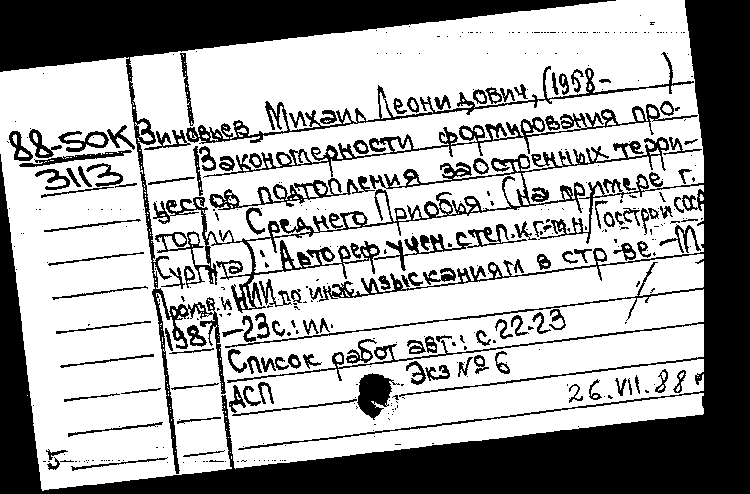 88-SOK
3113
Зиновьев, Михаил Леонидович, (1958-      )
Закономерности формирования про-
цессов подтопления застроенных терри-
тории Среднего Приобья: (на примере г.
Сургута) : Автореф. учен. степ. к.г.-м.н / Госстрой СССР
Произв. и НИИ по инж. изысканиям в стр-ве. - М.
1987 - 23 с. : ил. //
Список работ авт.: с. 22-23
АСП Экз № 6
26.VII.88
5